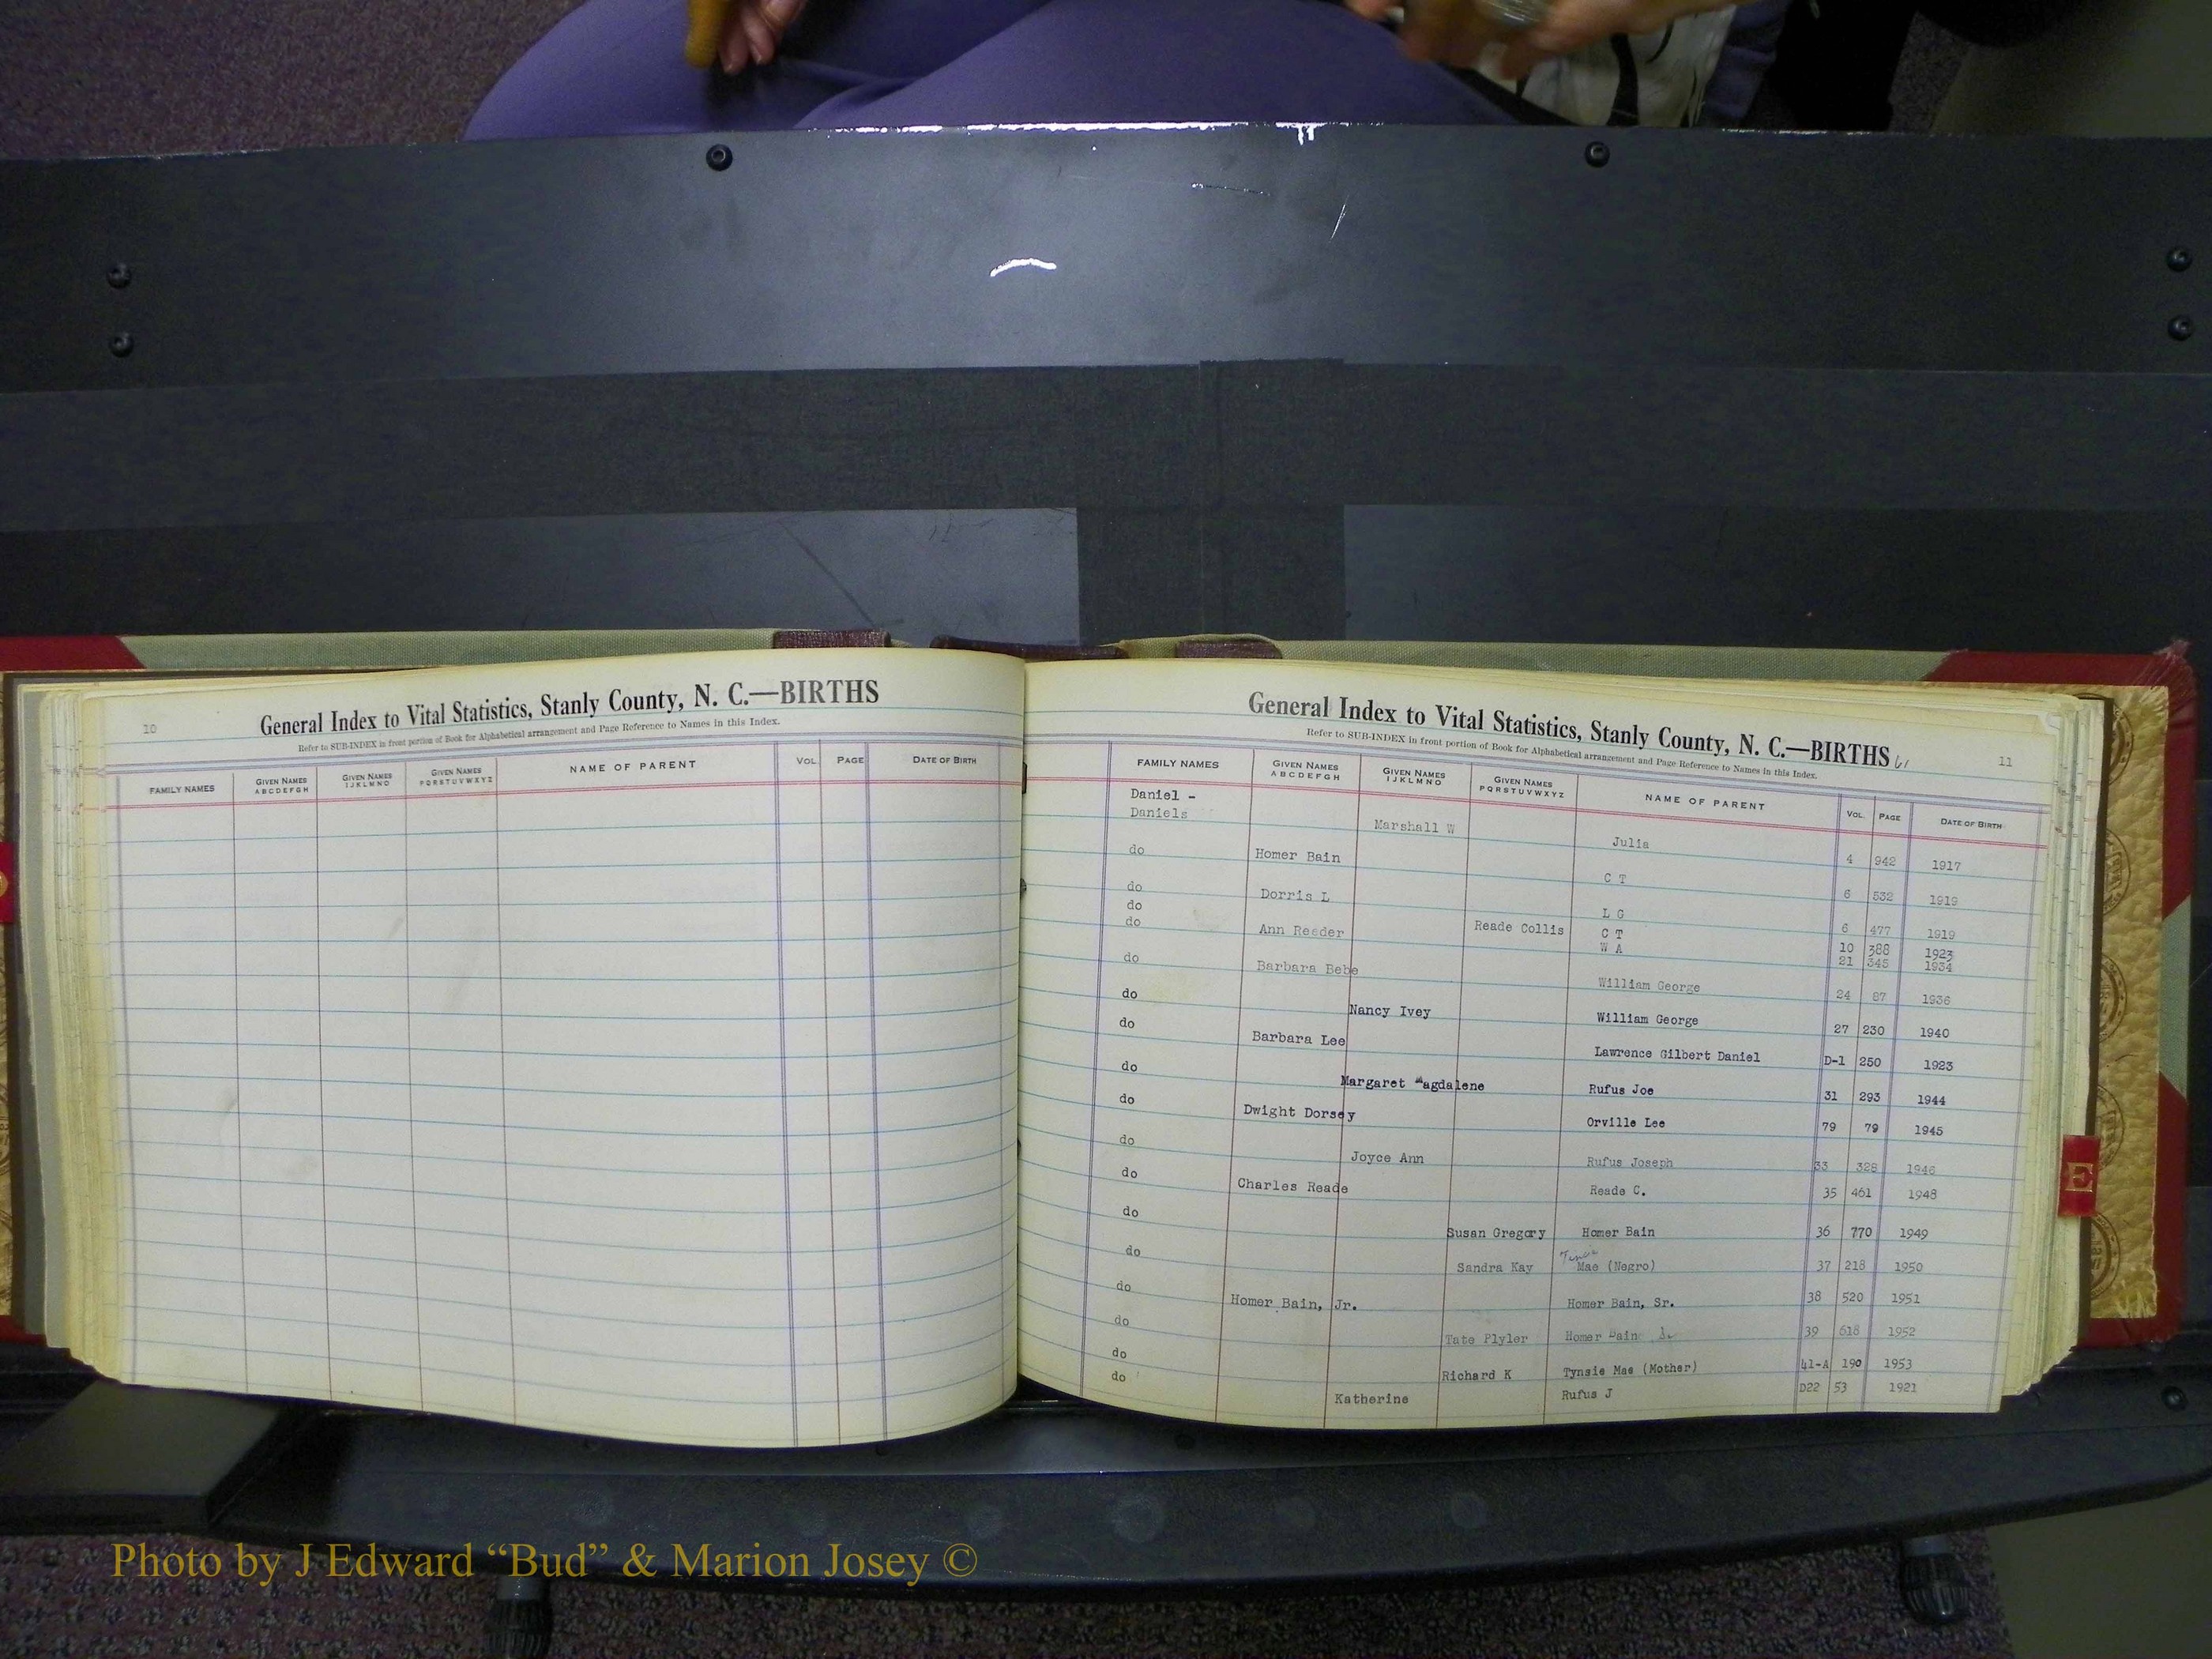 10
General Index to Vital Statistics, Stanly County, N. C.—BIRTHS
Refer to SUB-INDEX in front portion of Book for Alphabetical arrangement and Page Reference to Names in this Index.
FAMILY NAMES GIVEN NAMES ABCDEFGH GIVEN NAMES IJKLMNO GIVEN NAMES PQRSTUVWXYZ NAME OF PARENT VOL. PAGE DATE OF BIRTH
General Index to Vital Statistics, Stanly County, N. C.—BIRTHS
11
Refer to SUB-INDEX in front portion of Book for Alphabetical arrangement and Page Reference to Names in this Index.
FAMILY NAMES GIVEN NAMES ABCDEFGH GIVEN NAMES IJKLMNO GIVEN NAMES PQRSTUVWXYZ NAME OF PARENT VOL. PAGE DATE OF BIRTH
Daniel -
Daniels Marshall W Julia 4 942 1917
do Homer Bain C T 6 532 1919
do Dorris L L G 6 477 1919
do Reade Collis C T 10 388 1923
do Ann Reeder W A 21 345 1934
do Barbara Bebe William George 24 87 1936
do Nancy Ivey William George 27 230 1940
do Barbara Lee Lawrence Gilbert Daniel D-1 250 1923
do Margaret Magdalene Rufus Joe 31 293 1944
do Dwight Dorsey Orville Lee 79 79 1945
do Joyce Ann Rufus Joseph 33 328 1946
do Charles Reade Reade C. 35 461 1948
do Susan Gregory Homer Bain 36 770 1949
do Sandra Kay Mae (Negro) 37 218 1950
do Homer Bain, Jr. Homer Bain, Sr. 38 520 1951
do Tate Plyler Homer Bain 39 618 1952
do Richard K Tynsie Mae (Mother) 41-A 190 1953
do Katherine Rufus J D22 53 1921
E
Photo by J Edward “Bud” & Marion Josey ©